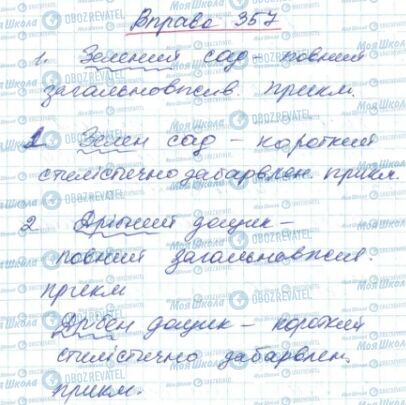 Вправа 357
1. Зелений сад – повний
загальновжив. прикм.
1 Зелен сад – короткий
стилістично забарвлен. прикм.
2 дощик –
повний загальновжив.
прикм
Дрібен дощик – короткий
стилістично забарвлен.
прикм.